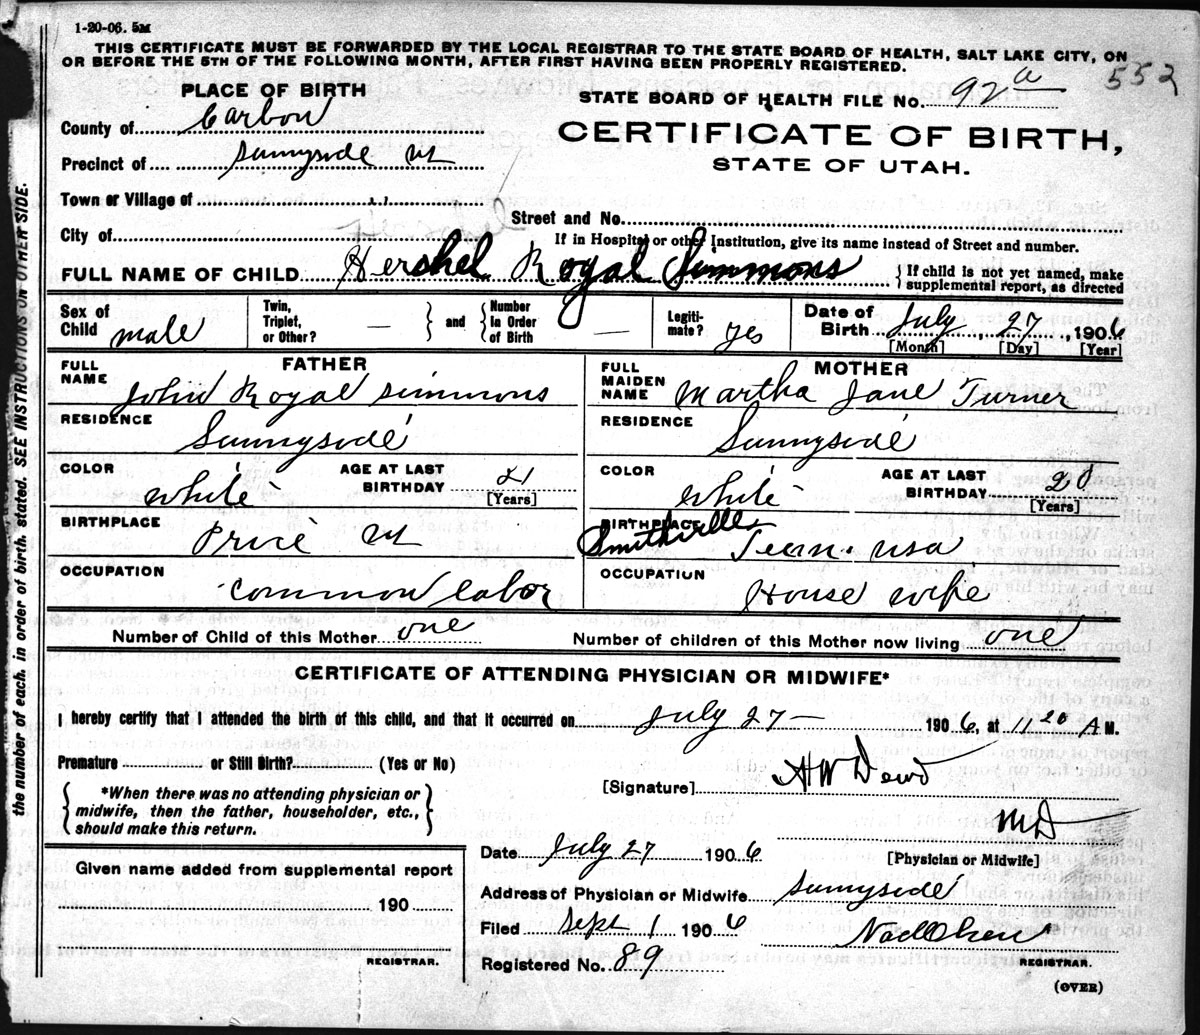 1-20-06. 5M
THIS CERTIFICATE MUST BE FORWARDED BY THE LOCAL REGISTRAR TO THE STATE BOARD OF HEALTH, SALT LAKE CITY, ON
OR BEFORE THE 5TH OF THE FOLLOWING MONTH, AFTER FIRST HAVING BEEN PROPERLY REGISTERED.
552
PLACE OF BIRTH
STATE BOARD OF HEALTH FILE No. 92 a
County of Carbon
CERTIFICATE OF BIRTH,
Precinct of Sunnyside Ut
STATE OF UTAH.
Town or Village of "
Street and No.
City of
If in Hospital or other Institution, give its name instead of Street and number.
FULL NAME OF CHILD Hershel Royal Simmons
If child is not yet named, make
supplemental report, as directed
Sex of Child male
Twin, Triplet, or Other? —
and
Number In Order of Birth —
Legiti-mate? yes
Date of Birth July 27, 1906
[Month] [Day] [Year]
FATHER
MOTHER
FULL NAME John Royal Simmons
FULL MAIDEN NAME Martha Jane Turner
RESIDENCE Sunnyside
RESIDENCE Sunnyside
COLOR white
AGE AT LAST BIRTHDAY 21 [Years]
COLOR White
AGE AT LAST BIRTHDAY 20 [Years]
BIRTHPLACE Price Ut
BIRTHPLACE Smithville Tenn. USA
OCCUPATION Common labor
OCCUPATION House wife
Number of Child of this Mother one
Number of children of this Mother now living one
CERTIFICATE OF ATTENDING PHYSICIAN OR MIDWIFE*
I hereby certify that I attended the birth of this child, and that it occurred on July 27— 1906, at 11 20 A M.
Premature or Still Birth? (Yes or No)
*When there was no attending physician or
midwife, then the father, householder, etc.,
should make this return.
[Signature] H W Dowd
MD
[Physician or Midwife]
Date July 27 1906
Given name added from supplemental report
190
REGISTRAR.
Address of Physician or Midwife Sunnyside
Filed Sept 1 1906
Registered No. 89
REGISTRAR.
(OVER)
the number of each, in order of birth, stated. SEE INSTRUCTIONS ON OTHER SIDE.